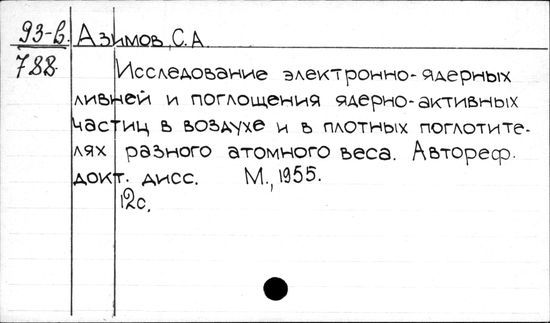 93-в Азимов, С.А.
788
Исследование электронно-ядерных
ливней и поглощения ядерно-активных
частиц в воздухе и в плотных поглотите-
лях разного атомного веса. Автореф.
докт. дисс. М., 1955.
12с.